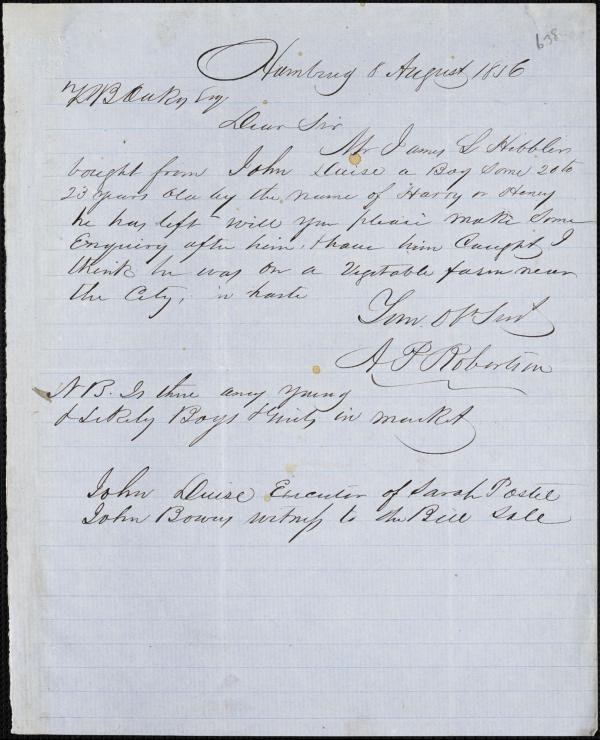 638
Hamburg 8 August 1856
Z B Oakes Esq
Dear Sir
Mr James L Hibbler
bought from John Duise a Boy Some 20 to
23 years Old by the name of Harry or Henry
he has left will you please make Some
Enquiry after him & have him Caught I
think he was on a Vegetable farm near
the City, in haste
Your Obt Sevt
A P Robertson
N B. Is there any young
& Likely Boys & Girls in market
John Duise Executor of Sarah Postell
John Bowers witness to the Bill Sale